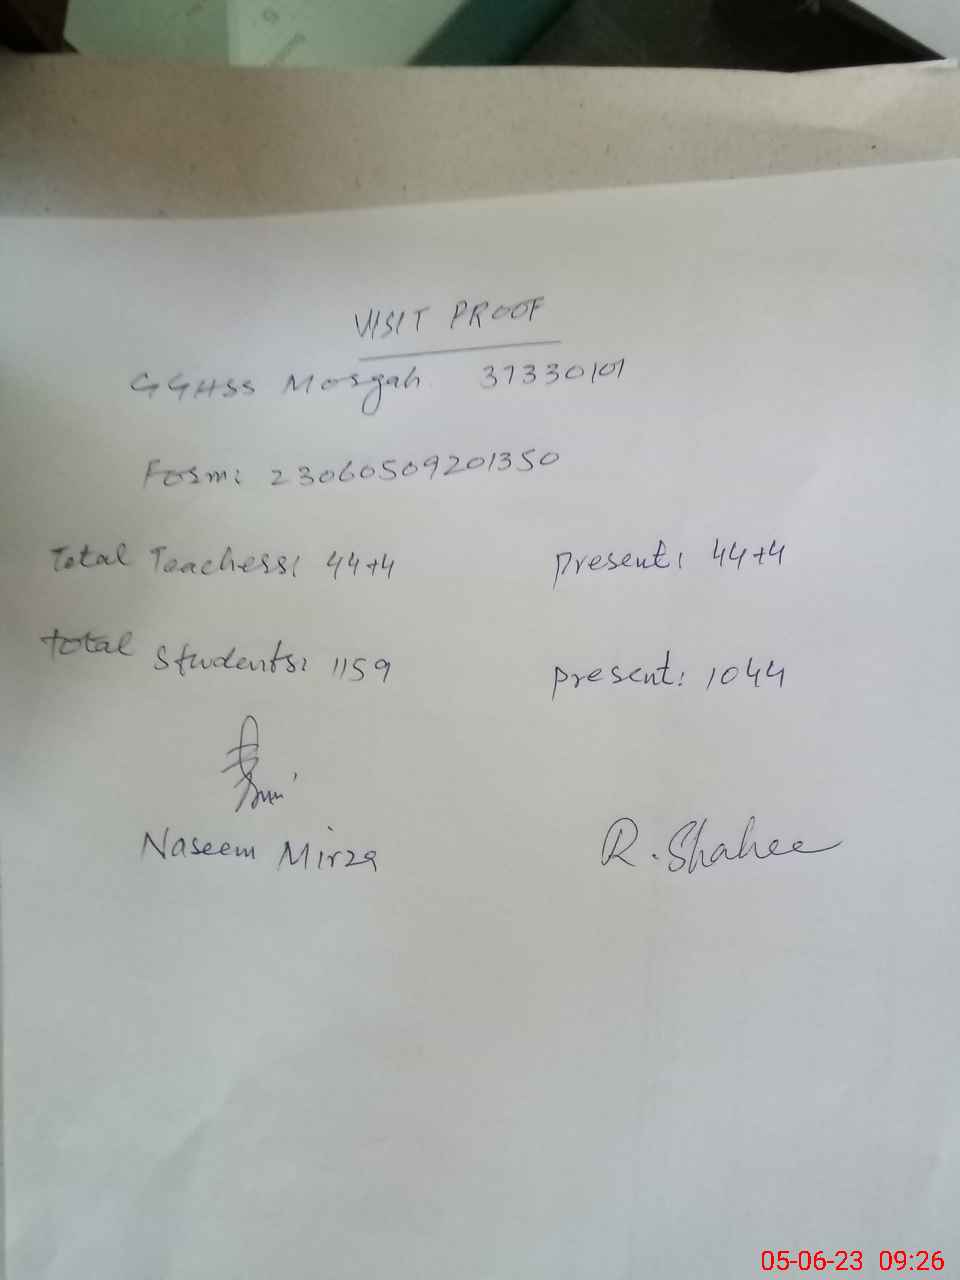 VISIT PROOF
GGHSS Morgah 37330101
Form: 23060509201350
Total Teachers: 44+4 Present: 44+4
Total Students: 1159 Present: 1044
Naseem Mirza R. Shahee
05-06-23 09:26